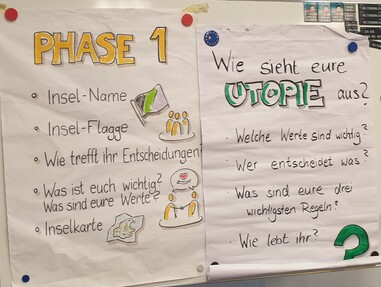 PHASE 1
Insel-Name
Insel-Flagge
Wie trefft ihr Entscheidungen
Was ist euch wichtig?
Was sind eure Werte?
Inselkarte
Wie sieht eure
UTOPIE aus?
Welche Werte sind wichtig?
Wer entscheidet was?
Was sind eure drei
wichtigsten Regeln?
Wie lebt ihr?
?